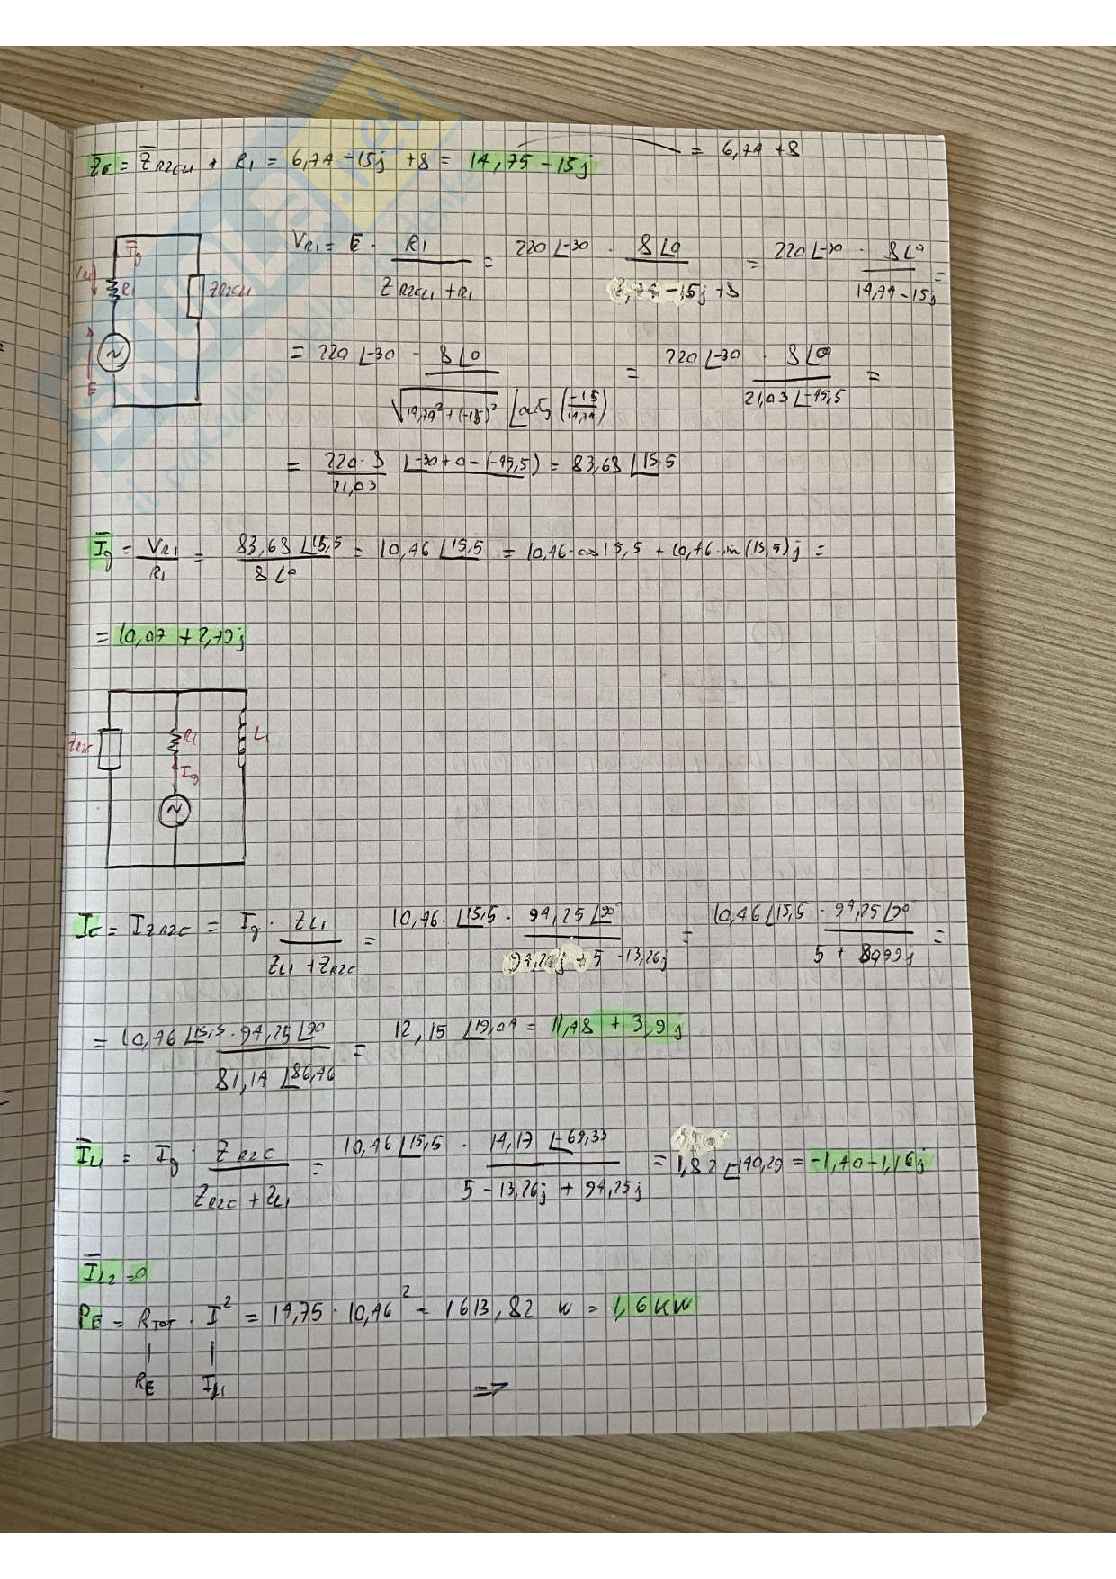 Z̄E = Z̄R2CL1 + R1 = 6,74 -15j +8 = 14,75 -15j = 6,74 +8
Īg
R1
ZR2CL1
E
VR1 = E · R1 / (ZR2CL1 + R1) = 220∠-30 · 8∠0 / (6,74 -15j +8) = 220∠-30 · 8∠0 / (14,74 -15j) =
= 220∠-30 · 8∠0 / (√(14,74² + (-15)²) ∠arctg(-15/14,74)) = 220∠-30 · 8∠0 / (21,03∠-45,5) =
= 220·8 / 21,03 ∠-30+0-(-45,5) = 83,68∠15,5
Īg = VR1 / R1 = 83,68∠15,5 / 8∠0 = 10,46∠15,5 = 10,46·cos15,5 + 10,46·sin(15,5)j =
= 10,07 + 2,79j
ZR2C
R1
L1
Ig
IC = IZR2C = Īg · ZL1 / (ZL1 + ZR2C) = 10,46∠15,5 · 94,25∠90 / (94,25j + 5 -13,26j) = 10,46∠15,5 · 94,25∠90 / (5 + 80,99j) =
= 10,46∠15,5 · 94,25∠90 / 81,14∠86,46 = 12,15∠19,04 = 11,48 + 3,9j
ĪL1 = Īg · ZR2C / (ZR2C + ZL1) = 10,46∠15,5 · 14,17∠-69,33 / (5 -13,26j + 94,25j) = 1,82∠-140,29 = -1,40 -1,16j
ĪL2 = 0
PE = RTOT · I² = 14,75 · 10,46² = 1613,82 W = 1,6 KW
RE
=>